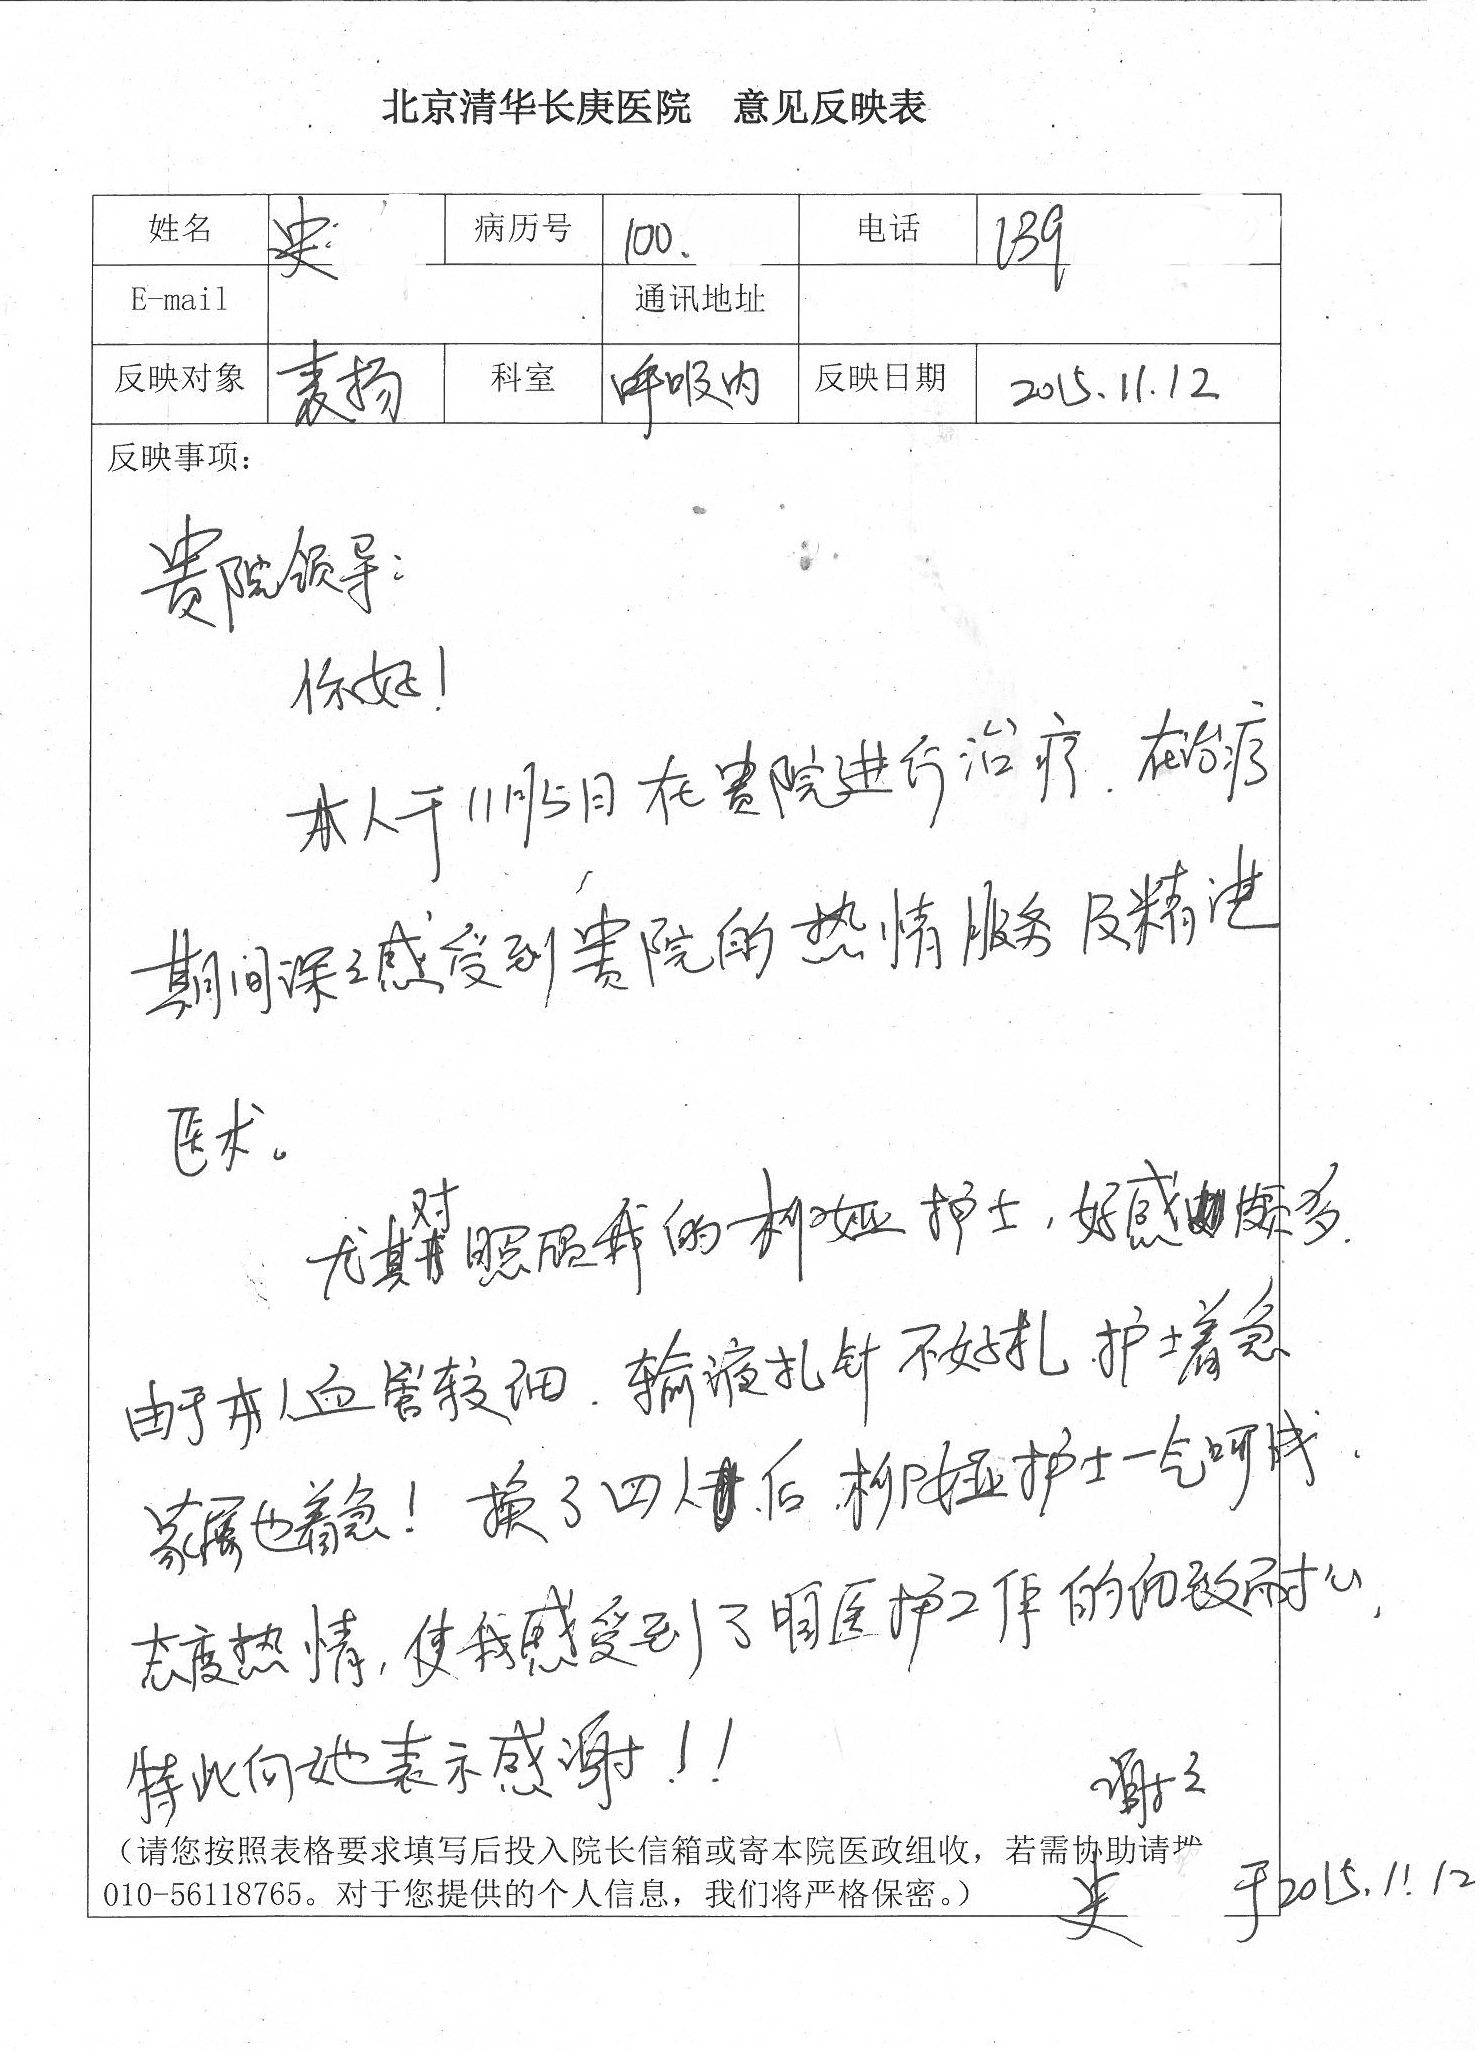 北京清华长庚医院 意见反映表
姓名 史 病历号 100. 电话 139
E-mail 通讯地址
反映对象 表扬 科室 呼吸内 反映日期 2015.11.12
反映事项：
贵院领导：
你好！
本人于11月5日在贵院进行治疗．在治疗
期间深々感受到贵院的热情服务及精进
医术。
尤其对照顾我的柳娅护士，好感颇多．
由于本人血管较细．输液扎针不好扎．护士着急
家属也着急！换了四人后．柳娅护士一气呵成．
态度热情，使我感受到了咱医护工作的细致耐心，
特此向她表示感谢！！
谢々
（请您按照表格要求填写后投入院长信箱或寄本院医政组收，若需协助请拨
010-56118765。对于您提供的个人信息，我们将严格保密。）
史 于2015.11.12